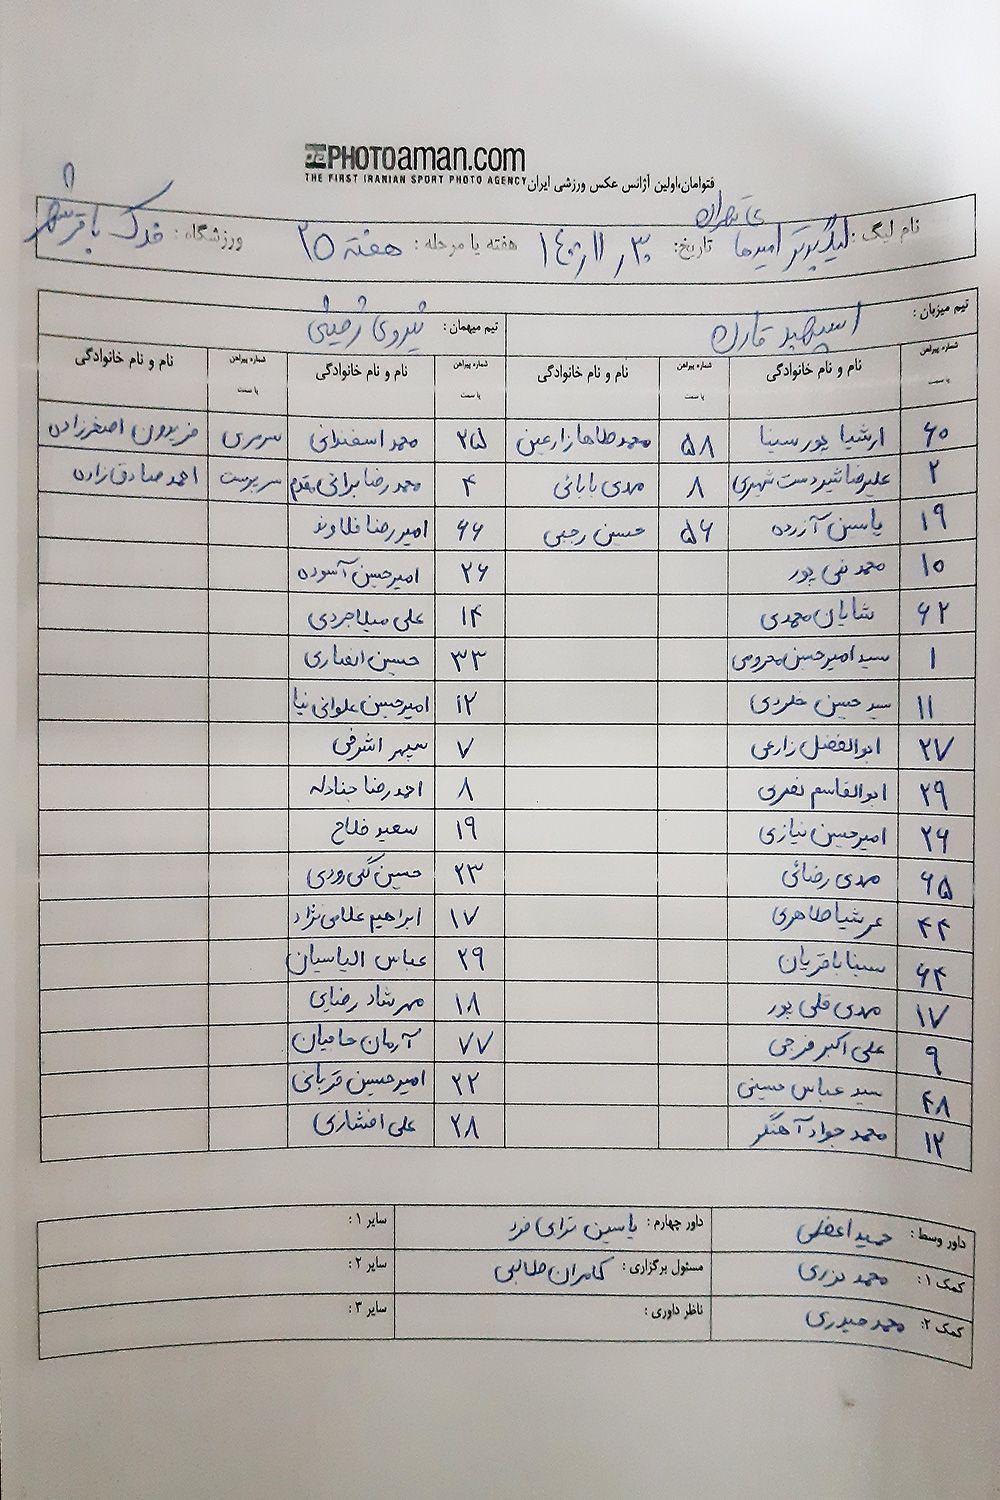 PHOTOaman.com
THE FIRST IRANIAN SPORT PHOTO AGENCY فتوامان،اولین آژانس عکس ورزشی ایران
نام لیگ : لیگ برتر امیدهای تهران تاریخ: هفته یا مرحله : هفته ۲۵ ورزشگاه : فدک باقرشهر
تیم میزبان : اسپهبد قارن تیم میهمان : نیروی زمینی
شماره پیراهن یا سمت نام و نام خانوادگی شماره پیراهن یا سمت نام و نام خانوادگی شماره پیراهن یا سمت نام و نام خانوادگی شماره پیراهن یا سمت نام و نام خانوادگی
۶۰ ارشیا پورسینا ۵۸ محمدطاها زارعین ۲۵ محمد اسفندانی سرمربی فریدون اصغرزاده
۲ علیرضا شیردست شهری ۸ مهدی بابائی ۴ محمدرضا براتی مقدم سرپرست احمد صادق زاده
۱۹ یاسین آزرده ۵۶ حسین رجبی ۶۶ امیررضا فلاوند
۱۰ محمد نبی پور ۲۶ امیرحسین آسوده
۶۲ شایان محمدی ۱۴ علی میلاجردی
۱ سید امیرحسین محرومی ۳۳ حسین انصاری
۱۱ سید حسین ۱۲ امیرحسین علوانی نیا
۲۷ ابوالفضل زارعی ۷ سپهر اشرفی
۲۹ ابوالقاسم نصری ۸ احمدرضا جنادله
۲۶ امیرحسین نیازی ۱۹ سعید فلاح
۶۵ مهدی رضائی ۲۳ حسین
۴۴ عرشیا طاهری ۱۷ ابراهیم غلامی نژاد
۶۴ سینا باقریان ۲۹ عباس الیاسیان
۱۷ مهدی قلی پور ۱۸ مهرشاد رضایی
۹ علی اکبر فرجی ۷۷ آرمان حامیان
۴۸ سید عباس حسینی ۲۲ امیرحسین قربانی
۱۲ محمد جواد آهنگر ۲۸ علی افشاری
داور وسط : حمید اعظمی داور چهارم : یاسین ترابی فرد سایر ۱ :
کمک ۱ : محمد مسئول برگزاری : کامران طالبی سایر ۲ :
کمک ۲: محمد حیدری ناظر داوری : سایر ۳ :